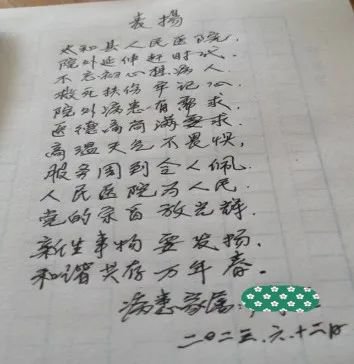 表揚
太和县人民医院,
院外延伸赶时代.
不忘初心想病人.
救死扶伤牢记心
院外病患有需求.
医德高尚满要求.
高温天气不畏惧,
服务周到令人佩.
人民医院为人民.
党的宗旨放光辉.
新生事物要发扬.
和谐共存万年春.
病患家属:
二〇二三.六.十二日